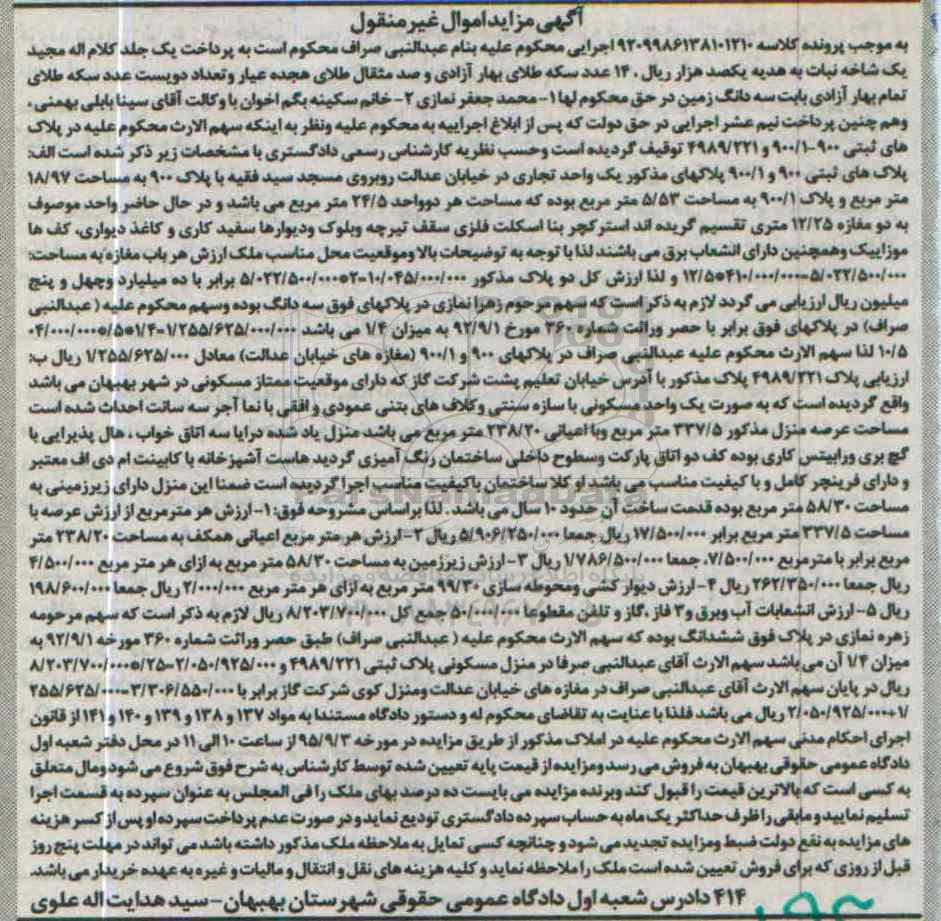 آگهی مزایده اموال غیر منقول
به موجب پرونده کلاسه ۹۲۰۹۹۸۶۱۳۸۱۰۱۲۱۰ اجرایی محکوم علیه بنام عبدالنبی صراف محکوم است به پرداخت یک جلد کلام اله مجید
یک شاخه نبات به هدیه یکصد هزار ریال ، ۱۴ عدد سکه طلای بهار آزادی و صد مثقال طلای هجده عیار و تعداد دویست عدد سکه طلای
تمام بهار آزادی بابت سه دانگ زمین در حق محکوم لها ۱- محمد جعفر نمازی ۲- خانم سکینه بگم اخوان با وکالت آقای سینا بابلی بهمئی ،
وهم چنین پرداخت نیم عشر اجرایی در حق دولت که پس از ابلاغ اجراییه به محکوم علیه ونظر به اینکه سهم الارث محکوم علیه در پلاک
های ثبتی ۹۰۰-۹۰۰/۱ و ۴۹۸۹/۲۲۱ توقیف گردیده است وحسب نظریه کارشناس رسمی دادگستری با مشخصات زیر ذکر شده است الف:
پلاک های ثبتی ۹۰۰ و ۹۰۰/۱ پلاکهای مذکور یک واحد تجاری در خیابان عدالت روبروی مسجد سید فقیه با پلاک ۹۰۰ به مساحت ۱۸/۹۷
متر مربع و پلاک ۹۰۰/۱ به مساحت ۵/۵۳ متر مربع بوده که مساحت هر دوواحد ۲۴/۵ متر مربع می باشد و در حال حاضر واحد موصوف
به دو مغازه ۱۲/۲۵ متری تقسیم گریده اند استرکچر بنا اسکلت فلزی سقف تیرچه وبلوک ودیوارها سفید کاری و کاغذ دیواری، کف ها
موزاییک وهمچنین دارای انشعاب برق می باشند لذا با توجه به توضیحات بالا وموقعیت محل مناسب ملک ارزش هر باب مغازه به مساحت:
۵/۰۲۲/۵۰۰/۰۰۰=۴۱۰/۰۰۰/۰۰۰*۱۲/۵ و لذا ارزش کل دو پلاک مذکور ۱۰/۰۴۵/۰۰۰/۰۰۰=۲*۵/۰۲۲/۵۰۰/۰۰۰ برابر با ده میلیارد وچهل و پنج
میلیون ریال ارزیابی می گردد لازم به ذکر است که سهم مرحوم زهرا نمازی در پلاکهای فوق سه دانگ بوده وسهم محکوم علیه ( عبدالنبی
صراف) در پلاکهای فوق برابر با حصر وراثت شماره ۳۶۰ مورخ ۹۲/۹/۱ به میزان ۱/۴ می باشد
۱۰/۵ لذا سهم الارث محکوم علیه عبدالنبی صراف در پلاکهای ۹۰۰ و ۹۰۰/۱ (مغازه های خیابان عدالت) معادل ۱/۲۵۵/۶۲۵/۰۰۰ ریال ب:
ارزیابی پلاک ۴۹۸۹/۲۲۱ پلاک مذکور با آدرس خیابان تعلیم پشت شرکت گاز که دارای موقعیت ممتاز مسکونی در شهر بهبهان می باشد
واقع گردیده است که به صورت یک واحد مسکونی با سازه سنتی وکلاف های بتنی عمودی و افقی با نما آجر سه سانت احداث شده است
مساحت عرصه منزل مذکور ۳۳۷/۵ متر مربع وبا اعیانی ۲۳۸/۲۰ متر مربع می باشد منزل یاد شده درایا سه اتاق خواب ، هال پذیرایی با
گچ بری ورابیتس کاری بوده کف دو اتاق پارکت وسطوح داخلی ساختمان رنگ آمیزی گردید هاست آشپزخانه با کابینت ام دی اف معتبر
و دارای فرینچر کامل و با کیفیت مناسب می باشد او کلا ساختمان باکیفیت مناسب اجرا گردیده است ضمنا این منزل دارای زیرزمینی به
مساحت ۵۸/۳۰ متر مربع بوده قدمت ساخت آن حدود ۱۰ سال می باشد . لذا براساس مشروحه فوق: ۱- ارزش هر مترمربع از ارزش عرصه با
مساحت ۳۳۷/۵ متر مربع برابر ۱۷/۵۰۰/۰۰۰ ریال جمعا ۵/۹۰۶/۲۵۰/۰۰۰ ریال ۲- ارزش هر متر مربع اعیانی همکف به مساحت ۲۳۸/۲۰ متر
مربع برابر با مترمربع ۷/۵۰۰/۰۰۰، جمعا ۱/۷۸۶/۵۰۰/۰۰۰ ریال ۳- ارزش زیرزمین به مساحت ۵۸/۳۰ متر مربع به ازای هر متر مربع ۴/۵۰۰/۰۰۰
ریال جمعا ۲۶۲/۳۵۰/۰۰۰ ریال ۴- ارزش دیوار کشی ومحوطه سازی ۹۹/۳۰ متر مربع به ازای هر متر مربع ۲/۰۰۰/۰۰۰ ریال جمعا ۱۹۸/۶۰۰/۰۰۰
ریال ۵- ارزش انشعابات آب وبرق و۳ فاز ،گاز و تلفن مقطوعا ۵۰/۰۰۰/۰۰۰ جمع کل ۸/۲۰۳/۷۰۰/۰۰۰ ریال لازم به ذکر است که سهم مرحومه
زهره نمازی در پلاک فوق ششدانگ بوده که سهم الارث محکوم علیه ( عبدالنبی صراف) طبق حصر وراثت شماره ۳۶۰ مورخه ۹۲/۹/۱ به
میزان ۱/۴ آن می باشد سهم الارث آقای عبدالنبی صرفا در منزل مسکونی پلاک ثبتی ۴۹۸۹/۲۲۱ و ۲/۰۵۰/۹۲۵/۰۰۰=۲۵*۸/۲۰۳/۷۰۰/۰۰۰
ریال در پایان سهم الارث آقای عبدالنبی صراف در مغازه های خیابان عدالت ومنزل کوی شرکت گاز برابر با ۳/۳۰۶/۵۵۰/۰۰۰=۲۵۵/۶۲۵/۰۰۰
۱/+۲/۰۵۰/۹۲۵/۰۰۰ ریال می باشد فلذا با عنایت به تقاضای محکوم له و دستور دادگاه مستندا به مواد ۱۳۷ و ۱۳۸ و ۱۳۹ و ۱۴۰ و ۱۴۱ از قانون
اجرای احکام مدنی سهم الارث محکوم علیه در املاک مذکور از طریق مزایده در مورخه ۹۵/۹/۳ از ساعت ۱۰ الی ۱۱ در محل دفتر شعبه اول
دادگاه عمومی حقوقی بهبهان به فروش می رسد ومزایده از قیمت پایه تعیین شده توسط کارشناس به شرح فوق شروع می شود ومال متعلق
به کسی است که بالاترین قیمت را قبول کند وبرنده مزایده می بایست ده درصد بهای ملک را فی المجلس به عنوان سپرده به قسمت اجرا
تسلیم نمایید و مابقی را ظرف حداکثر یک ماه به حساب سپرده دادگستری تودیع نماید و در صورت عدم پرداخت سپرده او پس از کسر هزینه
های مزایده به نفع دولت ضبط ومزایده تجدید می شود و چنانچه کسی تمایل به ملاحظه ملک مذکور داشته باشد می تواند در مهلت پنج روز
قبل از روزی که برای فروش تعیین شده است ملک را ملاحظه نماید و کلیه هزینه های نقل و انتقال و مالیات و غیره به عهده خریدار می باشد.
۴۱۴ دادرس شعبه اول دادگاه عمومی حقوقی شهرستان بهبهان - سید هدایت اله علوی